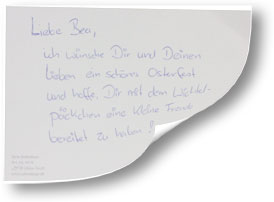 Liebe Bea,
ich wünsche Dir und Deinen
Lieben ein schönes Osterfest
und hoffe, Dir mit dem Wichtel-
päckchen eine kleine Freude
bereitet zu haben!